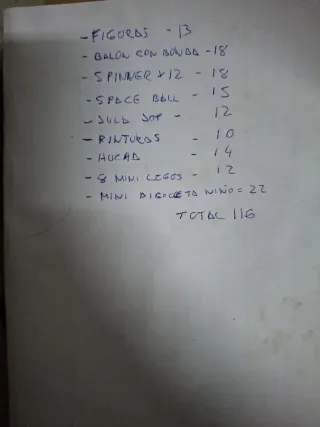 - FIGURAS - 13
- BALON CON BONBA - 18
- SPINNER X12 - 18
- SPACE BALL - 15
- 12
- PINTURAS - 10
- 14
- 8 MINI LEGOS - 12
- MINI NIÑO = 22
TOTAL 116